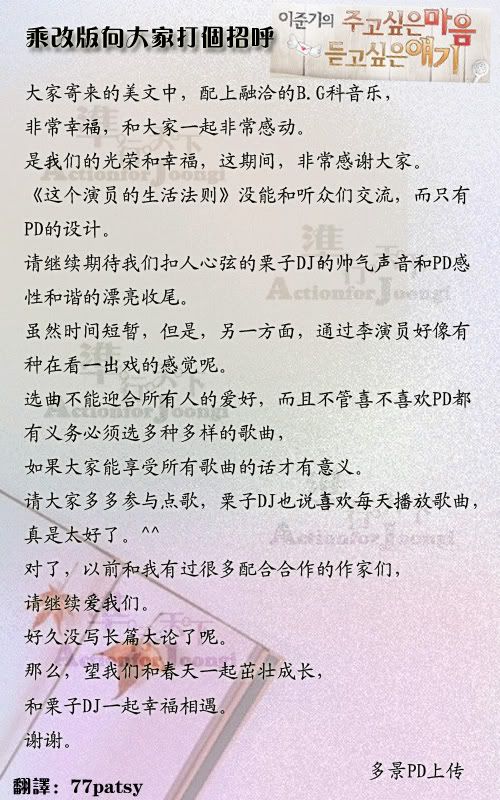 乘改版向大家打個招呼
이준기의 주고싶은마음
듣고싶은얘기
大家寄来的美文中，配上融洽的B.G科音乐，
非常幸福，和大家一起非常感动。
是我们的光荣和幸福，这期间，非常感谢大家。
《这个演员的生活法则》没能和听众们交流，而只有
PD的设计。
请继续期待我们扣人心弦的栗子DJ的帅气声音和PD感
性和谐的漂亮收尾。
虽然时间短暂，但是，另一方面，通过李演员好像有
种在看一出戏的感觉呢。
选曲不能迎合所有人的爱好，而且不管喜不喜欢PD都
有义务必须选多种多样的歌曲，
如果大家能享受所有歌曲的话才有意义。
请大家多多参与点歌，栗子DJ也说喜欢每天播放歌曲，
真是太好了。^^
对了，以前和我有过很多配合合作的作家们，
请继续爱我们。
好久没写长篇大论了呢。
那么，望我们和春天一起茁壮成长，
和栗子DJ一起幸福相遇。
谢谢。
多景PD上传
翻譯：77patsy
準行天下
ActionforJoongi
準行天下
ActionforJoongi
準行天下
ActionforJoongi
準行天下
ActionforJoongi
準行天下
ActionforJoongi